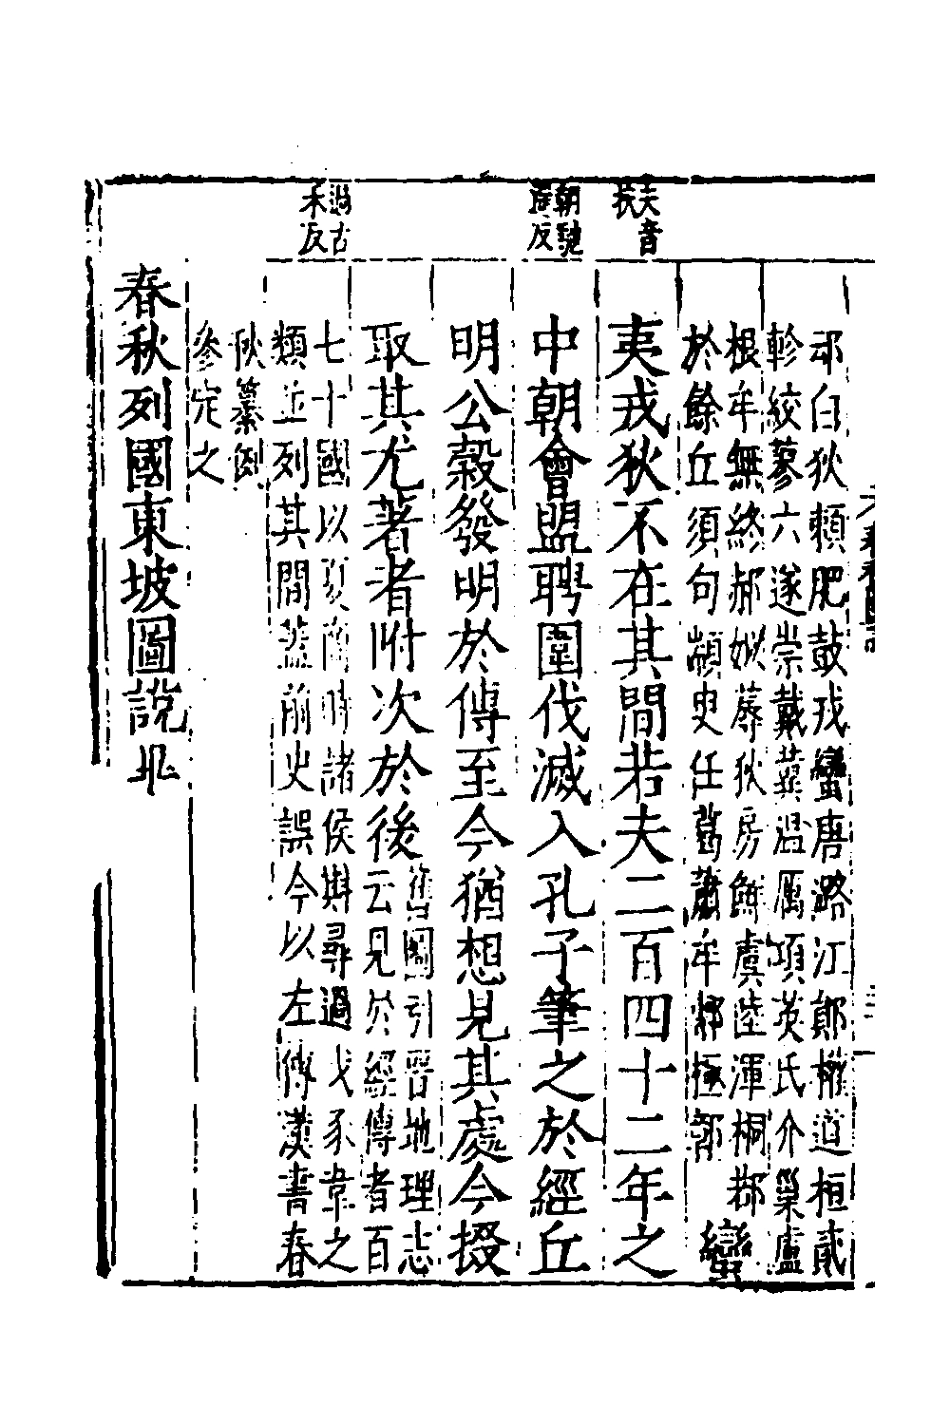 夫音
扶
朝馳
遥反
過古
禾反
白狄頼肥鼓戎蠻唐潞江鄖權道桓貳
軫絞蓼六遂崇戴冀温厲項英氏介巢盧
根牟無終郝姒蓐狄房鮮虞陸渾桐鄀
於餘丘須句顓臾任葛蕭牟極鄣
蠻
夷戎狄不在其間若夫二百四十二年之
中朝會盟聘圍伐滅入孔子筆之於經丘
明公穀發明於傳至今猶想見其處今掇
取其尤著者附次於後
舊圖引晉地理志
云見於經傳者百
七十國以夏商時諸侯斟尋過戈豕韋之
類並列其間蓋前史誤今以左傳漢書春
秋纂例
參定之
春秋列國東坡圖說